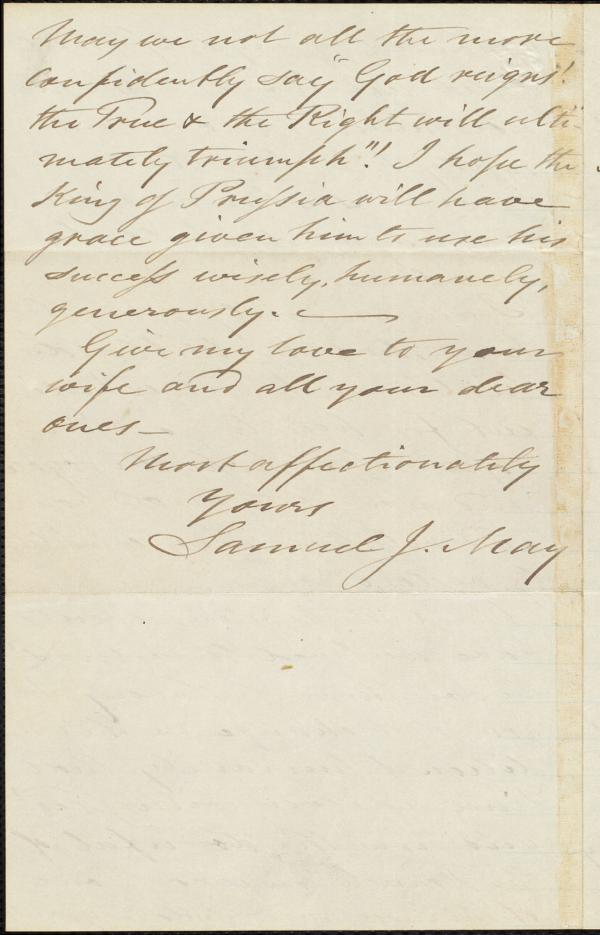 May we not all the more
confidently say "God reigns!
the True & the Right will ulti-
mately triumph"!! I hope the
King of Prussia will have
grace given him to use his
success wisely, humanely,
generously.
Give my love to your
wife and all your dear
ones—
Most affectionately
Yours
Samuel J. May